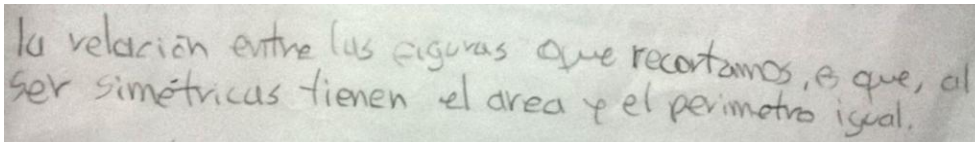 la relación entre las figuras que recortamos, es que, al
ser simétricas tienen el area y el perimetro igual.